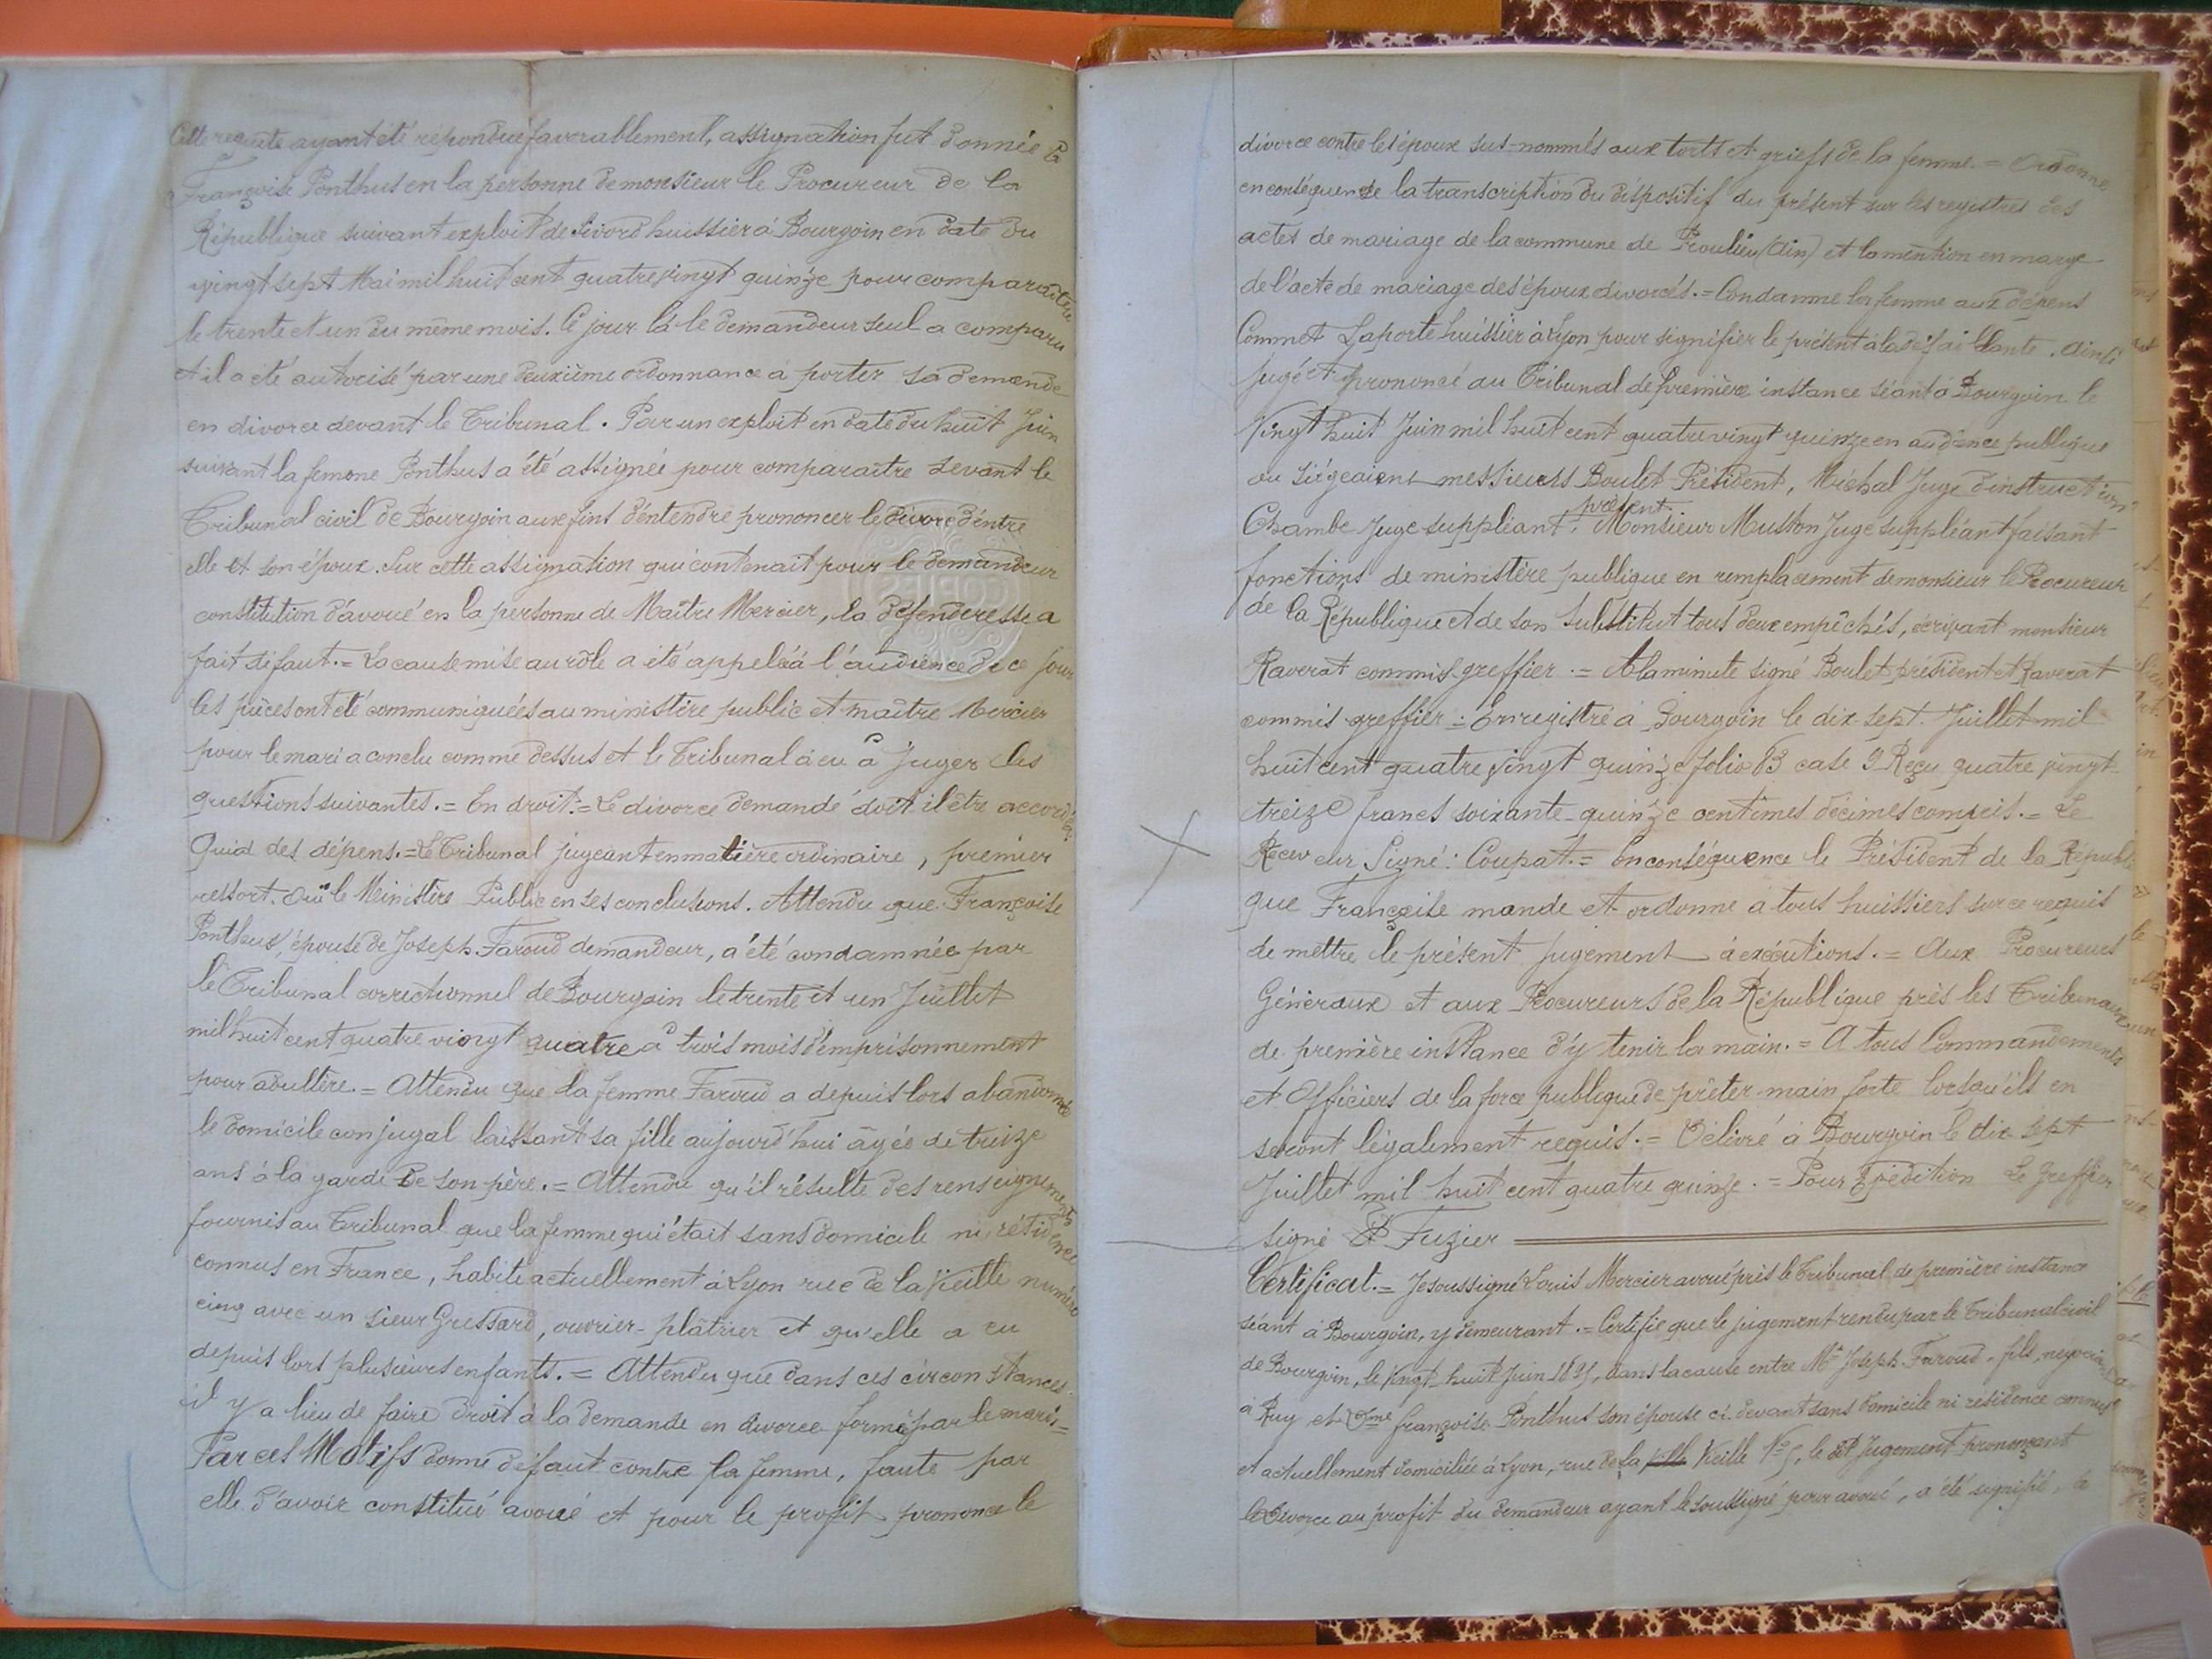 Cette requête ayant été répondue favorablement, assignation fut donnée à
Françoise Ponthus en la personne de monsieur le Procureur de la
République suivant exploit de Sivord huissier à Bourgoin en date du
vingt sept Mai mil huit cent quatre vingt quinze pour comparaître
le trente et un du même mois. Ce jour là le demandeur seul a comparu
et il a été autorisé par une deuxième ordonnance à porter sa demande
en divorce devant le Tribunal. Par un exploit en date du huit Juin
suivant la femme Ponthus a été assignée pour comparaître devant le
Tribunal civil de Bourgoin aux fins d'entendre prononcer le divorce d'entre
elle et son époux. Sur cette assignation qui contenait pour le demandeur
constitution d'avoué en la personne de Maître Mercier, la défenderesse a
fait défaut. = La cause mise au rôle a été appelée à l'audience de ce jour
les pièces ont été communiquées au ministère public et maître Mercier
pour le mari a conclu comme dessus et le Tribunal a eu à juger les
questions suivantes. = En droit: = Le divorce demandé doit il être accordé?
Quid des dépens. = Le Tribunal jugeant en matière ordinaire, premier
ressort. Ouï le Ministère Public en ses conclusions. Attendu que Françoise
Ponthus, épouse de Joseph Faroud demandeur, a été condamnée par
le Tribunal correctionnel de Bourgoin le trente et un Juillet
mil huit cent quatre vingt quatre à trois mois d'emprisonnement
pour adultère. = Attendu que la femme Faroud a depuis lors abandonné
le domicile conjugal laissant sa fille aujourd'hui âgée de treize
ans à la garde de son père. = Attendu qu'il résulte des renseignements
fournis au Tribunal que la femme qui était sans domicile ni résidence
connus en France, habite actuellement à Lyon rue de la Vieille numéro
cinq avec un sieur Gressard, ouvrier-plâtrier et qu'elle a eu
depuis lors plusieurs enfants. = Attendu que dans ces circonstances
il y a lieu de faire droit à la demande en divorce formé par le mari. =
Par ces Motifs donne défaut contre la femme, faute par
elle d'avoir constitué avoué et pour le profit prononce le
divorce contre les époux sus-nommés aux torts et griefs de la femme. = Ordonne
en conséquence la transcription du dispositif du présent sur les registres des
actes de mariage de la commune de Proulieu (Ain) et la mention en marge
de l'acte de mariage des époux divorcés. = Condamne la femme aux dépens
Commet Laporte huissier à Lyon pour signifier le présent à la défaillante. Ainsi
jugé et prononcé au Tribunal de première instance séant à Bourgoin le
Vingt huit Juin mil huit cent quatre vingt quinze en audience publique
ou siégeaient messieurs Boulet Président, Michal Juge d'instruction
Chambe Juge suppléant. présent Monsieur Muston Juge suppléant faisant
fonctions de ministère publique en remplacement de monsieur le Procureur
de la République et de son substitut tous deux empêchés, écrivant monsieur
Raverat commis greffier. = A la minute signé Boulet président et Raverat
commis greffier = Enregistré à Bourgoin le dix-sept Juillet mil
huit cent quatre vingt quinze folio 83 case 9 Reçu quatre vingt
treize francs soixante-quinze centimes décimes compris. = Le
Receveur Signé: Coupat. = En conséquence le Président de la Républi
que Françoise mande et ordonne à tous huissiers sur ce requis
de mettre le présent jugement à exécutions. = Aux Procureurs
Généraux et aux Procureurs de la République près les Tribunaux
de première instance d'y tenir la main. = A tous Commandements
et Officiers de la force publique de prêter main forte lorsqu'ils en
seront légalement requis. = Délivré à Bourgoin le dix sept
Juillet mil huit cent quatre quinze. = Pour Expédition Le Greffier
signé Fuzier
Certificat. = Je soussigné Louis Mercier avoué près le Tribunal de première instance
séant à Bourgoin, y demeurant. = Certifie que le jugement rendu par le Tribunal civil
de Bourgoin, le Vingt-huit Juin 1895, dans la cause entre Mr Joseph Faroud, fils, négociant
à Ruy et Dme françoise Ponthus son épouse ci-devant sans domicile ni résidence connus
et actuellement domiciliée à Lyon, rue de la Vieille No 5, le dit Jugement prononçant
le Divorce au profit du demandeur ayant le soussigné pour avoué, a été signifié, à